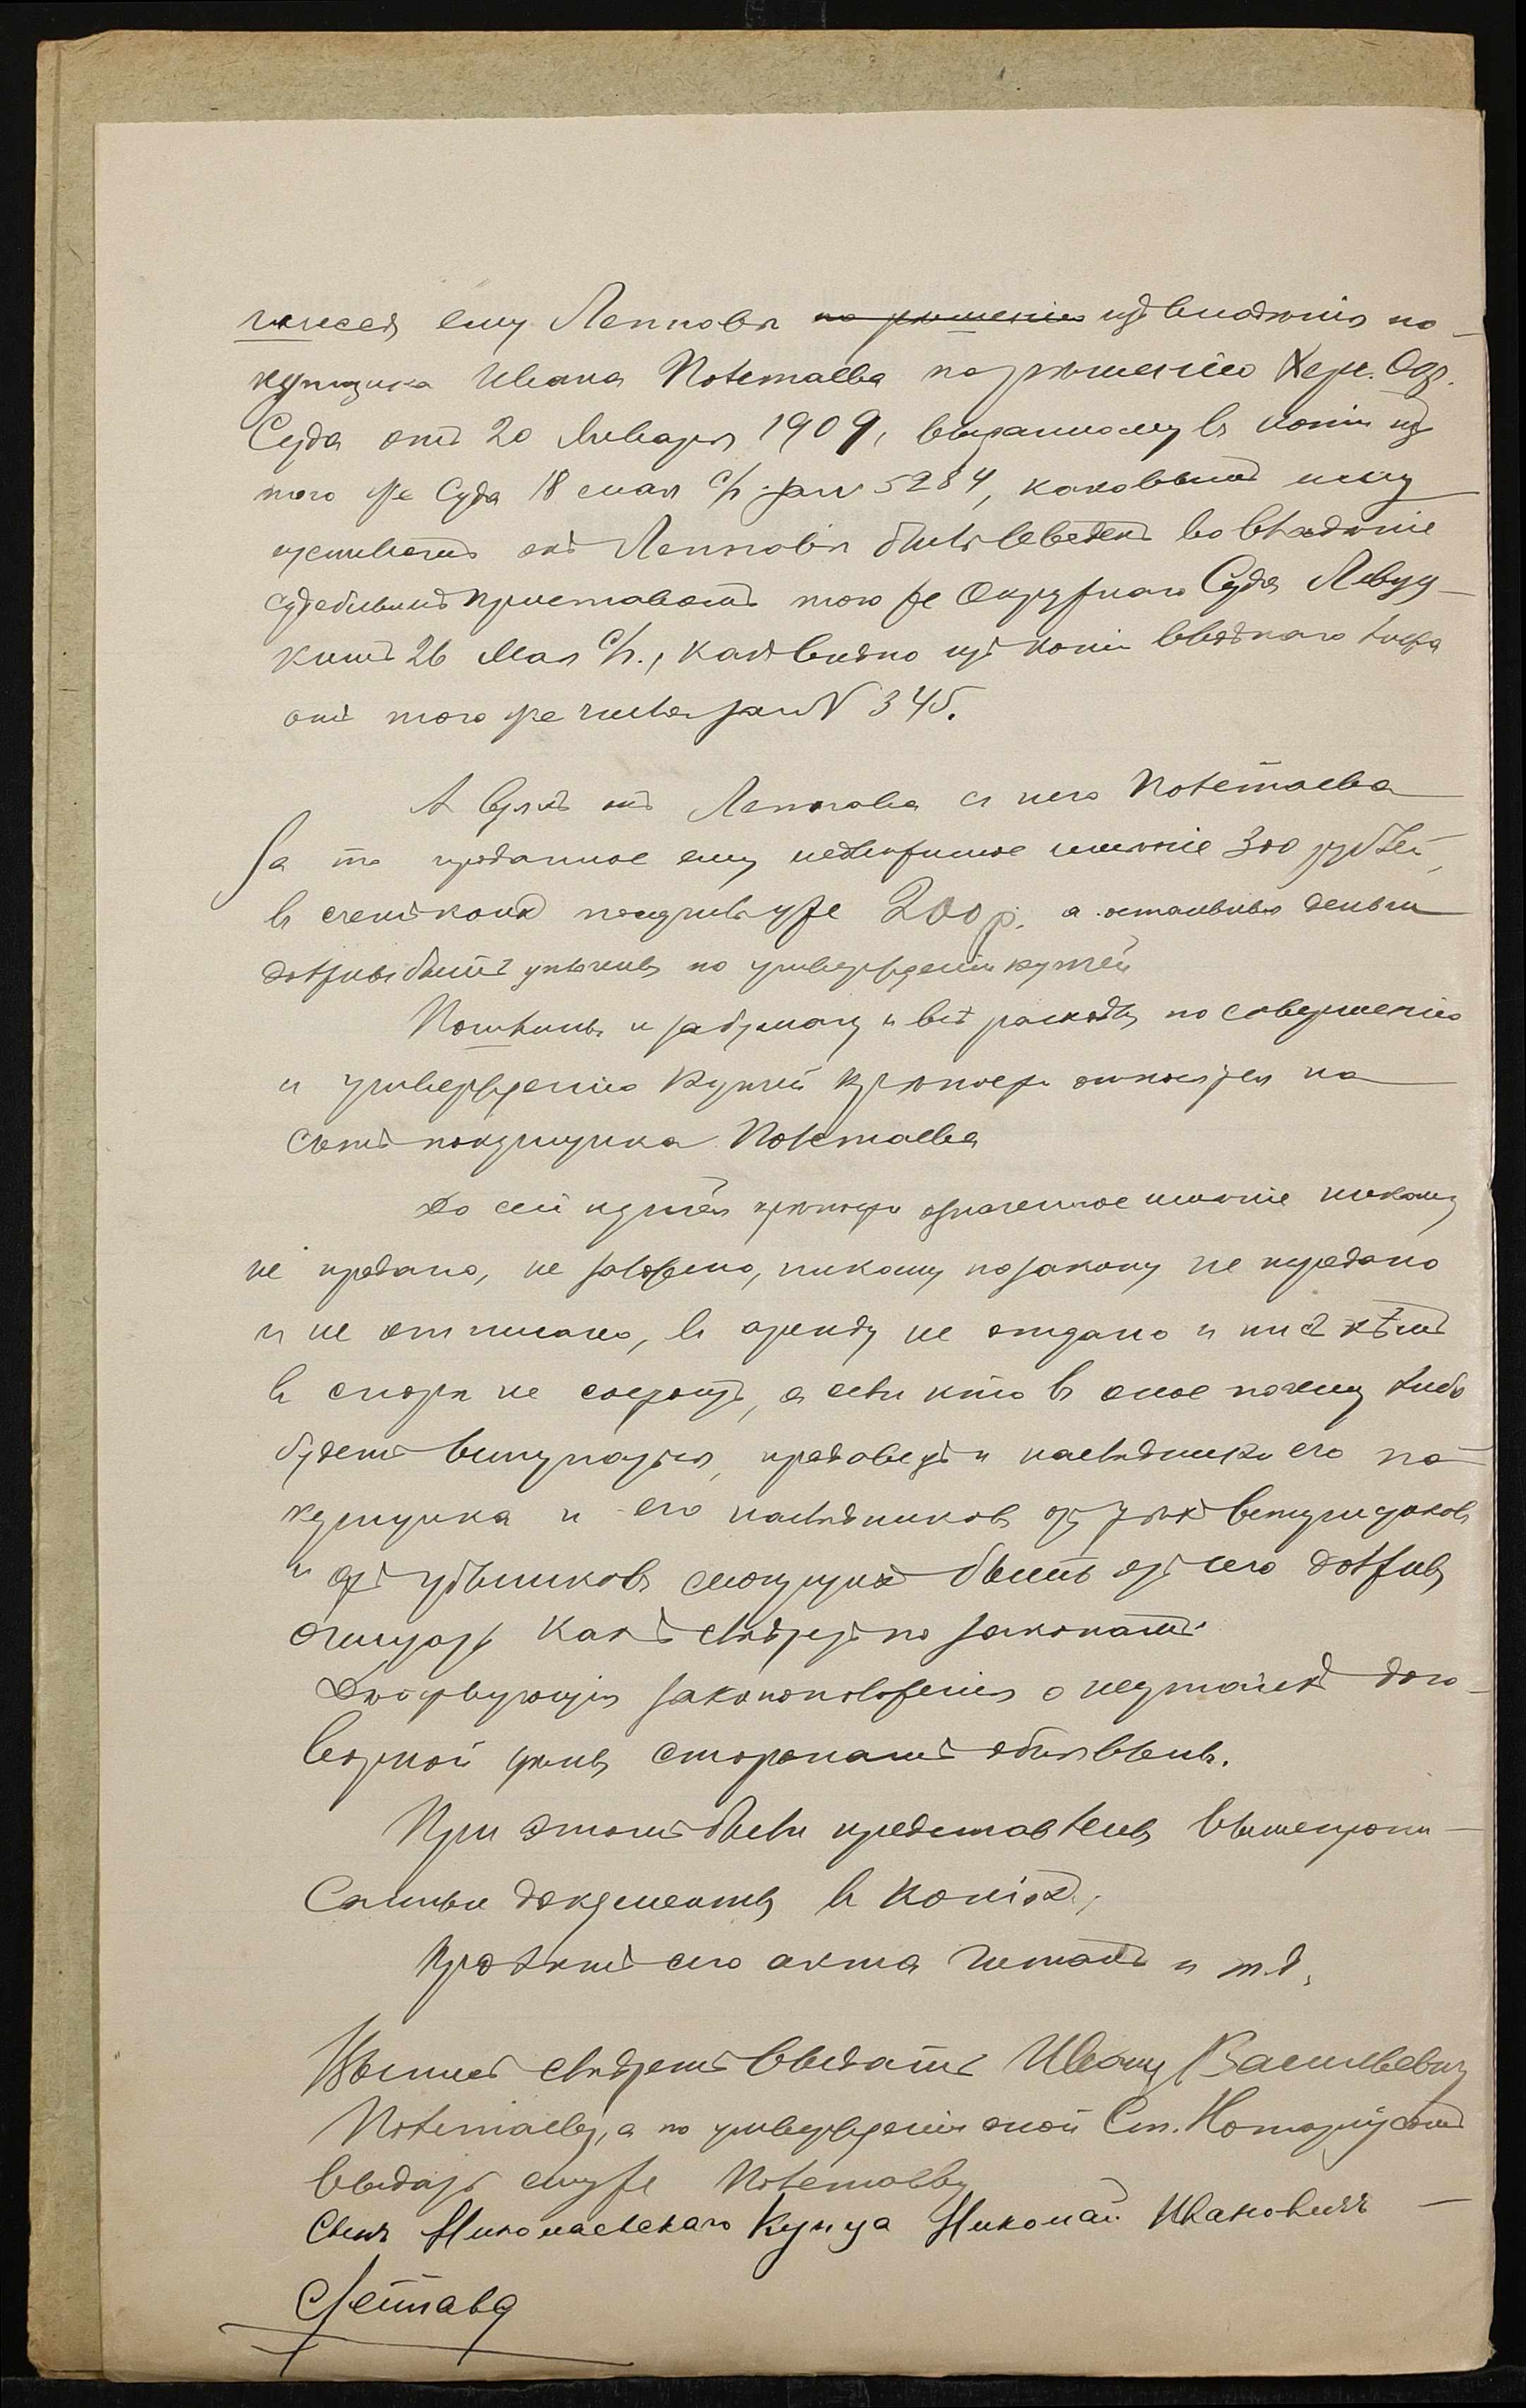 ему Лепповъ по рѣшенію изъ владѣнія по-
купщика Ивана Полетаева по рѣшенію Хер. Окр.
Суда отъ 20 Января 1909, выданному въ копіи изъ
того же Суда 18 мая с/г. за № 5284, каковымъ
онъ Лепповъ былъ введенъ во владѣніе
судебнымъ приставомъ того же Окружнаго Суда
кимъ 26 Мая с/г., какъ видно изъ копіи вводнаго листа
отъ того же числа за № 345.
А взялъ онъ Леппова съ него Полетаева
За то проданное ему недвижимое имѣніе 300 рублей,
въ счетъ коихъ получилъ уже 200 р. а остальныя деньги
должны быть уплочены по утвержденіи купчей
Пошлины и за бумагу и всѣ расходы по совершенію
и утвержденію купчей крѣпости относятся на
счетъ покупщика Полетаева
До сей купчей крѣпости означенное имѣніе никому
не продано, не заложено, никому по закону не передано
и не отписано, въ аренду не отдано и ни съ кѣмъ
въ спорѣ не состоитъ, а если кто въ оное почему либо
будетъ вступаться, продавецъ и наслѣдники его по-
купщика и его наслѣдниковъ отъ тѣхъ вступщиковъ
и отъ убытковъ могущихъ быть отъ сего должны
очищать какъ слѣдуетъ по законамъ.
Дѣйствующія законоположенія о неутайкѣ дого-
ворной цѣны сторонамъ объявлены.
При этомъ были представлены вышепропи-
санные документы въ копіяхъ,
Проэктъ сего акта читанъ и т.д.
Выпись слѣдуетъ выдать Ивану Васильевичу
Полетаеву, а по утвержденіи оной Ст. Нотаріусомъ
выдать ему же Полетаеву
Сынъ Николаевскаго Купца Николай Ивановичъ —